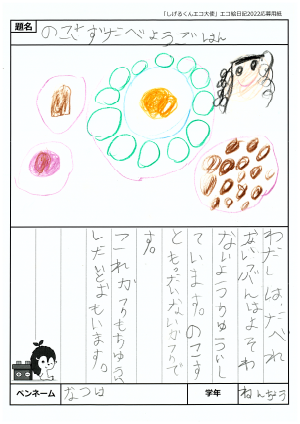 「しげるくんエコ大使」エコ絵日記2022応募用紙
題名
のこさずたべようごはん
わたしは、たべれ
ないぶんはよそわ
ないようちゅういし
ています。のこす
ともったいないからで
す。
これからもちゅうい
したいとおもいます。
ペンネーム
なつは
学年
ねんちょう